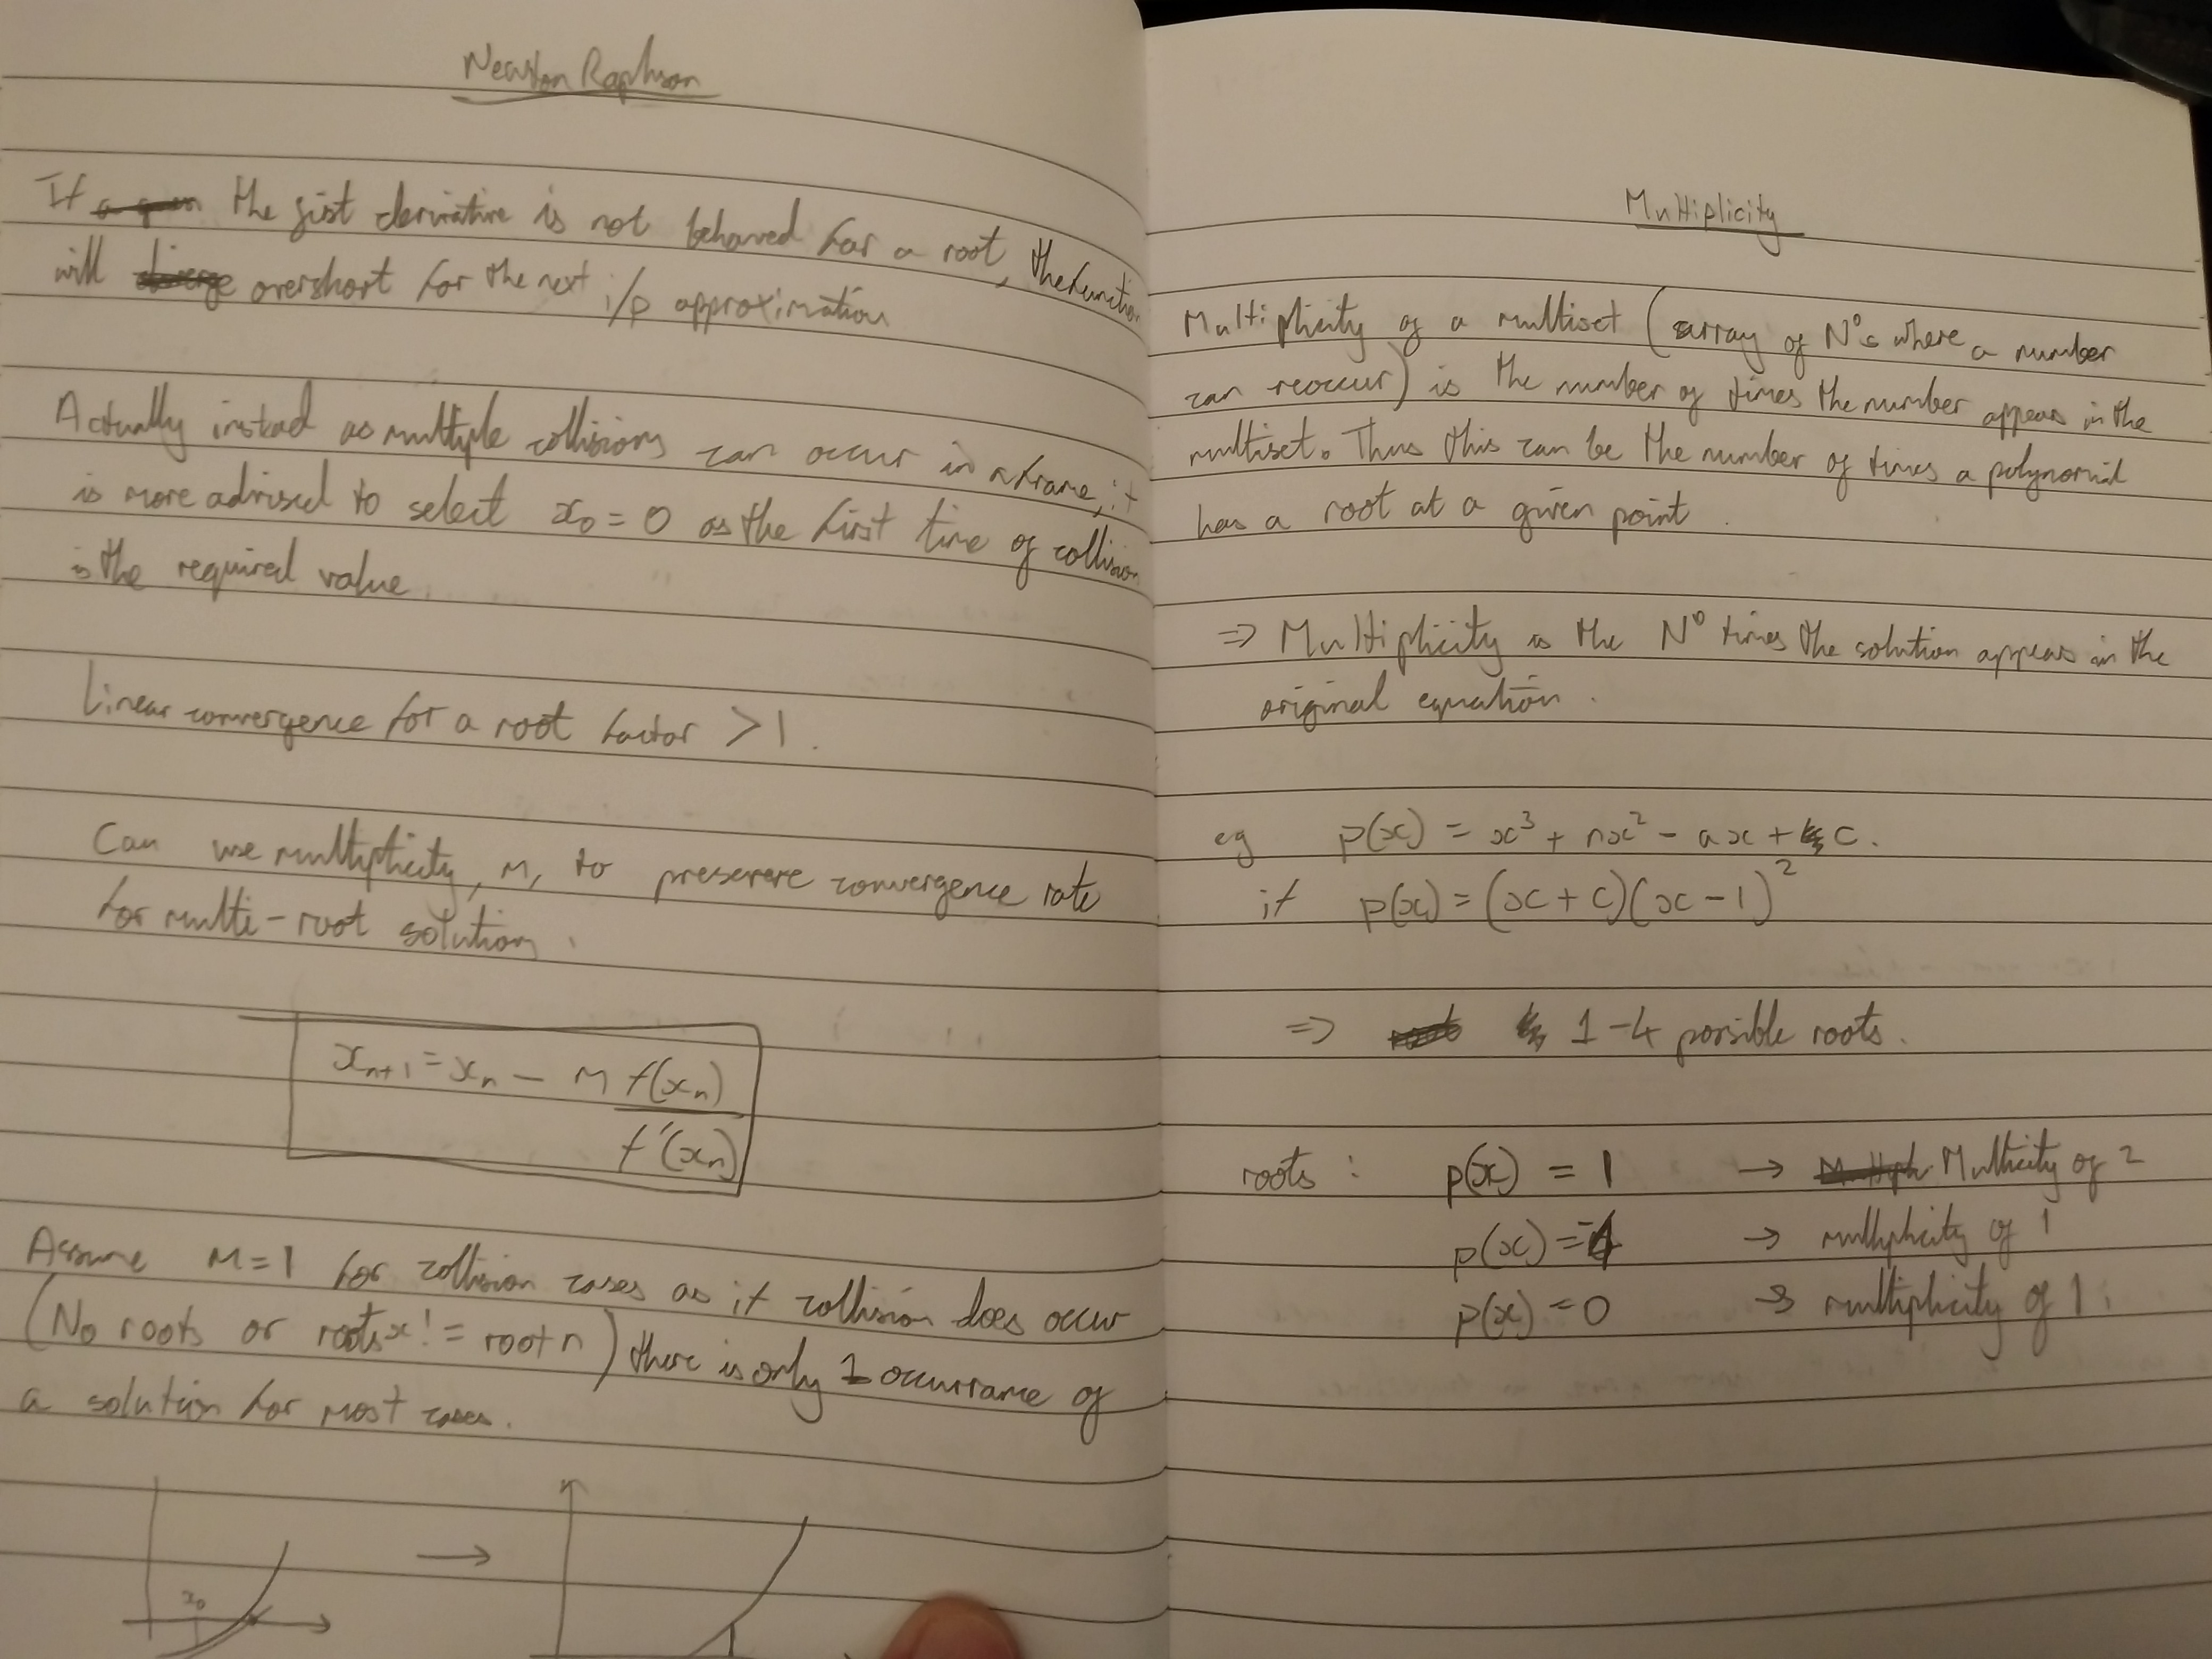 Newton Raphson
If the fist derivative is not behaved for a root, the function
will overshort for the next i/p approximation
Actually instead as multiple collisions can occur in a frame, it
is more advised to select x₀ = 0 as the first time of collision
is the required value.
Linear convergence for a root factor > 1.
Can use multiplicity, M, to preserere convergence rate
for multi-root solution.
xₙ₊₁ = xₙ - M f(xₙ)
f'(xₙ)
Assume M=1 for collision cases as if collision does occur
(No roots or roots x != root n) there is only 1 occurrame of
a solution for most cases.
x₀
Multiplicity
Multiplicity of a multiset (array of Nºs where a number
can reoccur) is the number of times the number appears in the
multiset. Thus this can be the number of times a polynomial
has a root at a given point.
⇒ Multiplicity is the Nº times the solution appears in the
original equation.
eg p(x) = x³ + nx² - ax + c.
if p(x) = (x + c)(x - 1)²
⇒ 1-4 possible roots.
roots : p(x) = 1 → Multicity of 2
p(x) = → multiplicity of 1
p(x) = 0 → multiplicity of 1.